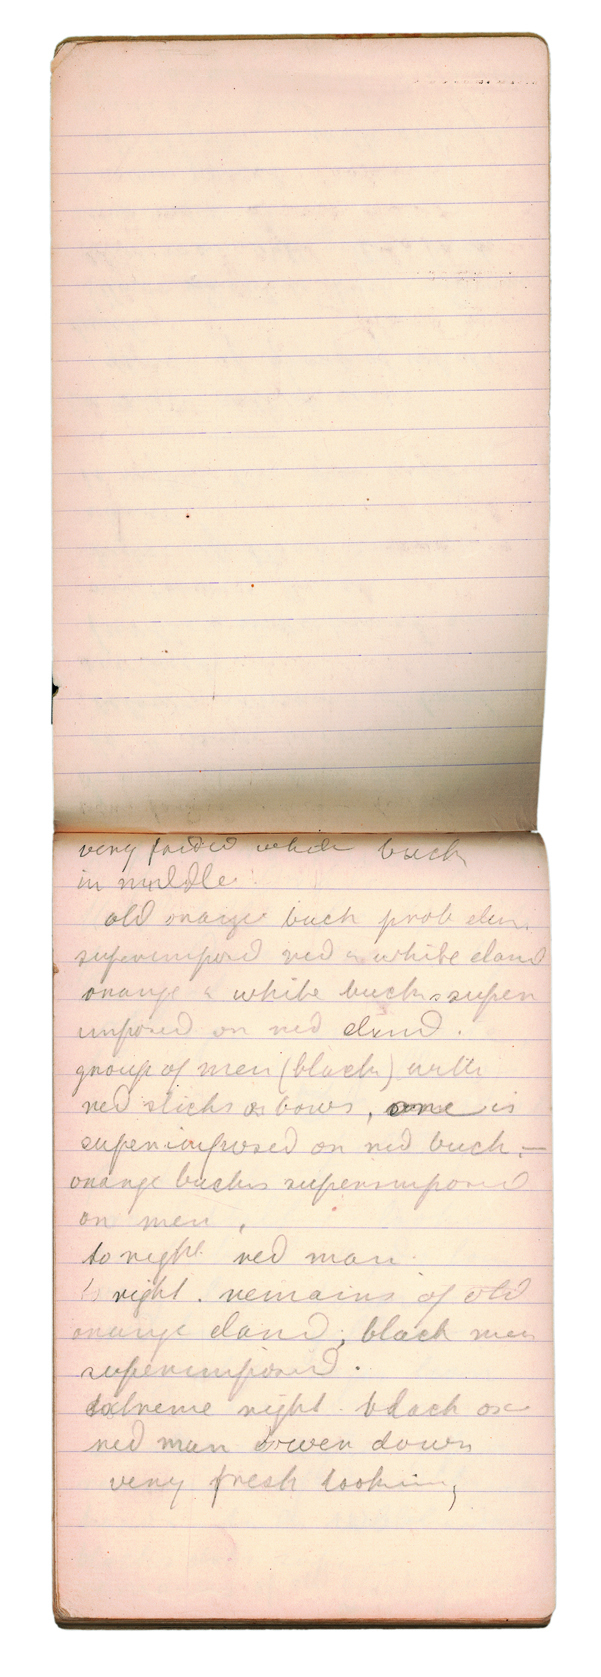 very faded white buck
in middle.
old orange buck prob elan.
superimposed red & white eland
orange & white bucks super
imposed on red eland.
group of men (black) with
red sticks or bows, one is
superimposed on red buck. —
orange bucks superimposed
on men,
to right red man.
to right. remains of old
orange eland, black men
superimposed.
Extreme right. black ox
red man lower down
very fresh looking,